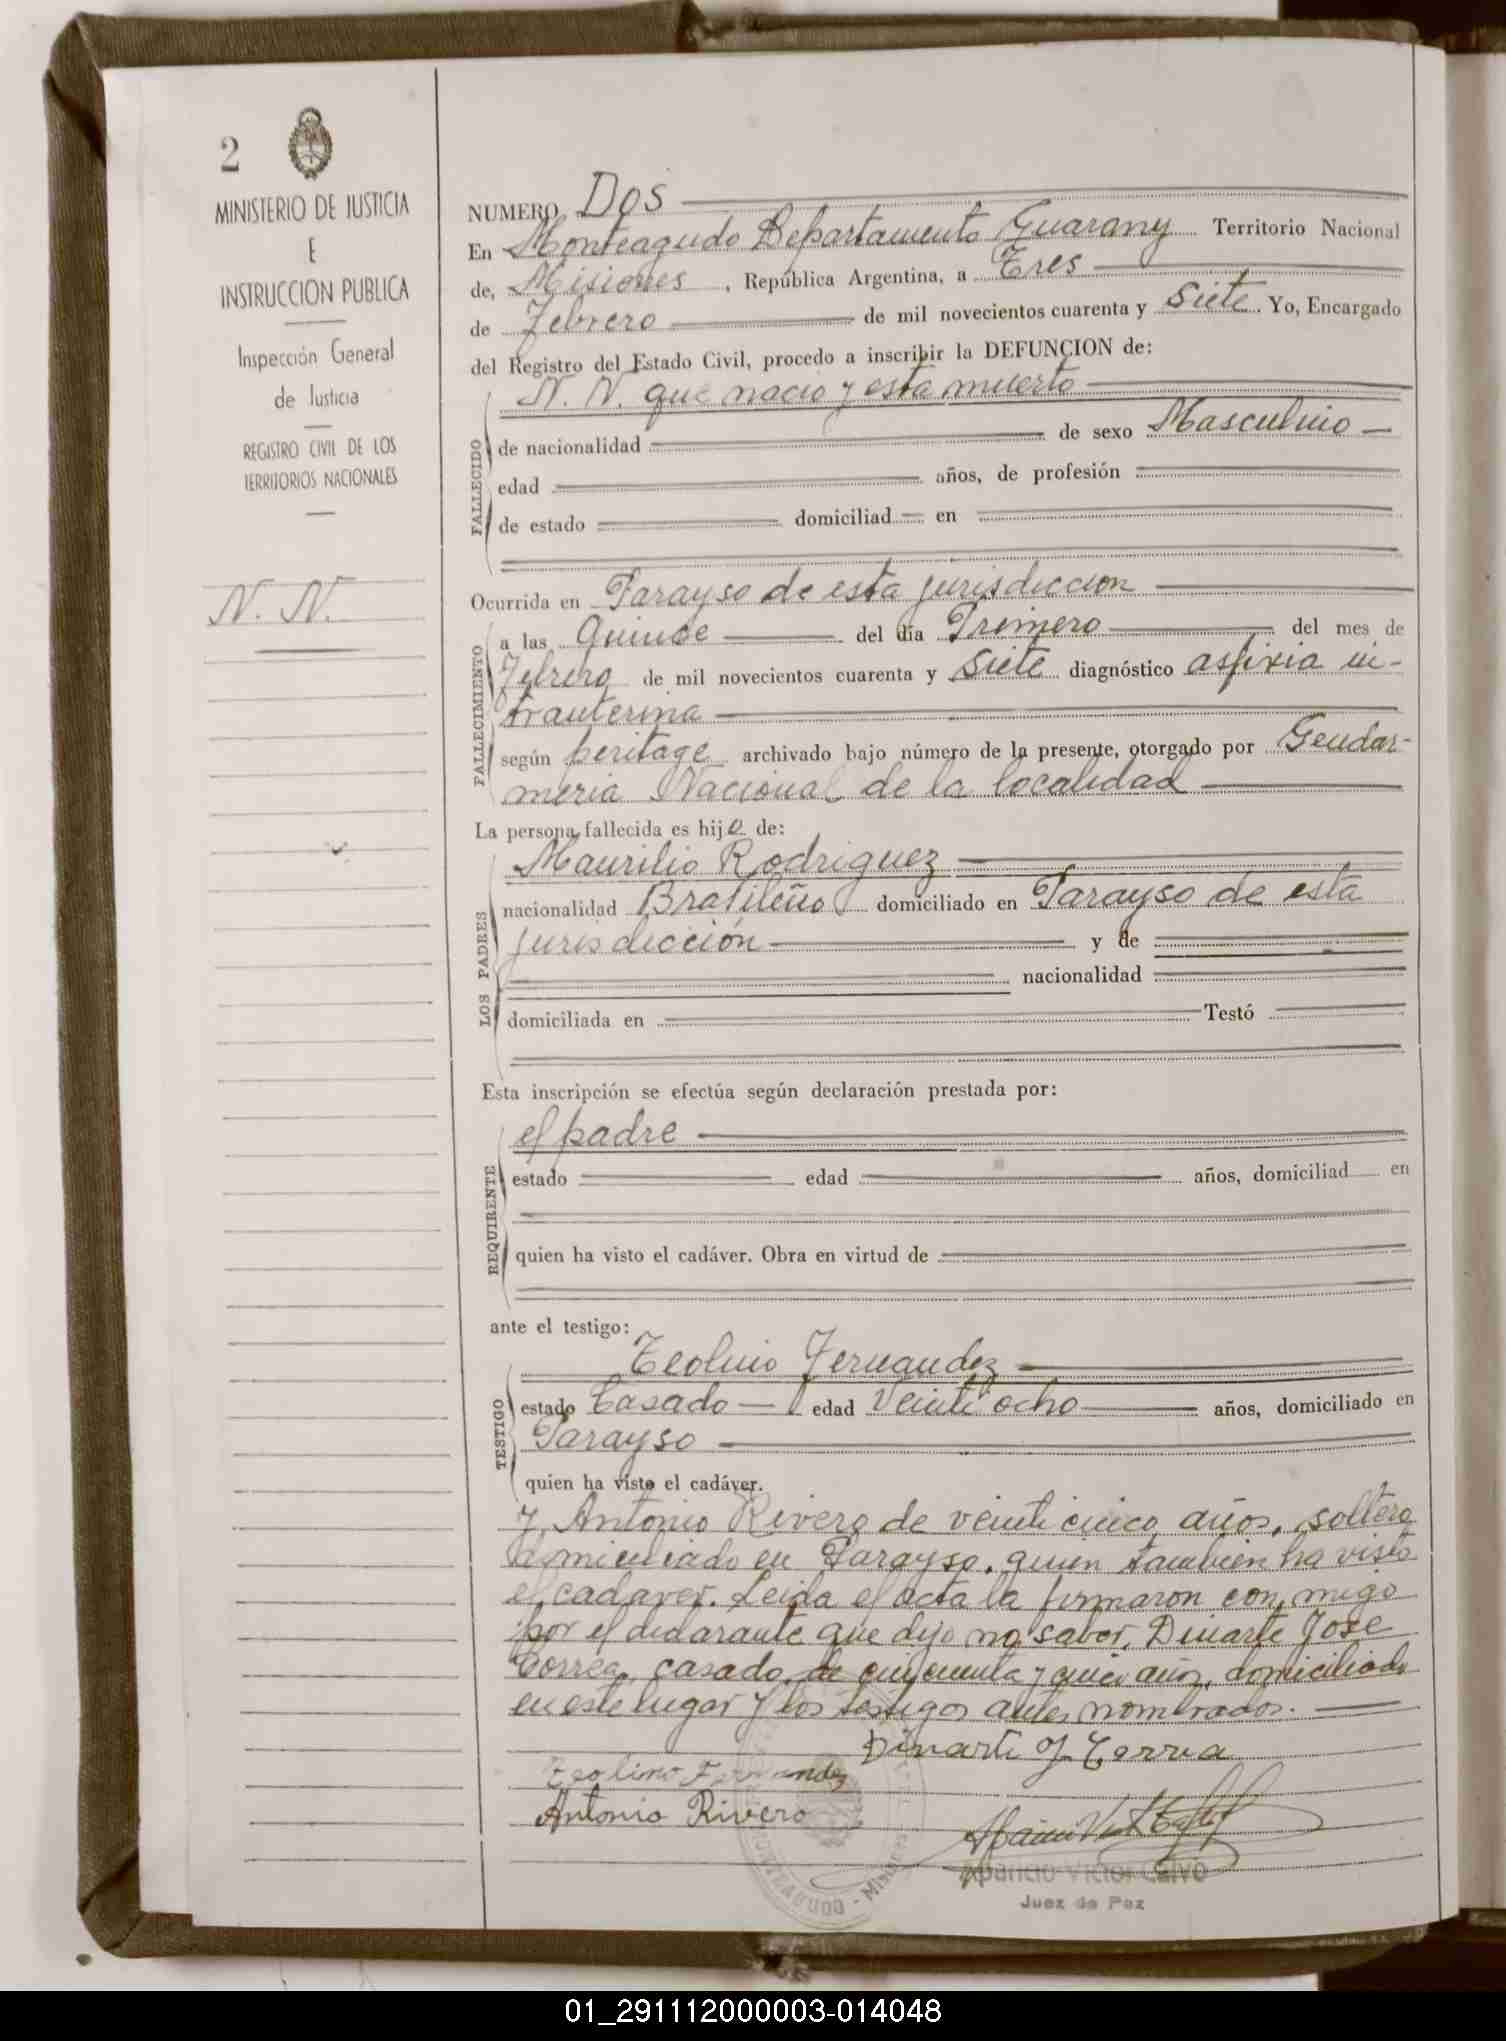 2
MINISTERIO DE JUSTICIA
E
INSTRUCCION PUBLICA
Inspección General
de Justicia
REGISTRO CIVIL DE LOS
TERRITORIOS NACIONALES
N. N.
NUMERO Dos
En Monteagudo Departamento Guarany Territorio Nacional
de, Misiones, República Argentina, a Tres
de Febrero de mil novecientos cuarenta y Siete. Yo, Encargado
del Registro del Estado Civil, procedo a inscribir la DEFUNCION de:
FALLECIDO
N. N. que nacio y esta muerto
de nacionalidad de sexo Masculino
edad años, de profesión
de estado domiciliad en
Ocurrida en Parayso de esta jurisdiccion
FALLECIMIENTO
a las Quince del día Primero del mes de
Febrero de mil novecientos cuarenta y Siete diagnóstico asfixia in-
trauterina
según peritage archivado bajo número de la presente, otorgado por Gendar-
meria Nacional de la localidad
La persona fallecida es hijo de:
LOS PADRES
Maurilio Rodriguez
nacionalidad Brasileño domiciliado en Parayso de esta
jurisdicción y de
nacionalidad
domiciliada en Testó
Esta inscripción se efectúa según declaración prestada por:
REQUIRENTE
el padre
estado edad años, domiciliad en
quien ha visto el cadáver. Obra en virtud de
ante el testigo:
TESTIGO
Teolino Fernandez
estado Casado edad Veinti ocho años, domiciliado en
Parayso
quien ha visto el cadáver.
y, Antonio Rivero de veinti cinco años, soltero
domiciliado en Parayso, quien tambien ha visto
el cadaver. Leida el acta la firmaron con migo
por el declarante que dijo no saber, Dinarte Jose
Correa, casado, de cincuenta y cinco años, domiciliado
en este lugar y los testigos antes nombrados.
Dinarte J Correa
Teolino Fernandez
Antonio Rivero
MONTEAGUDO - Misiones
Aparicio Victor Calvo
Juez de Paz
01_291112000003-014048